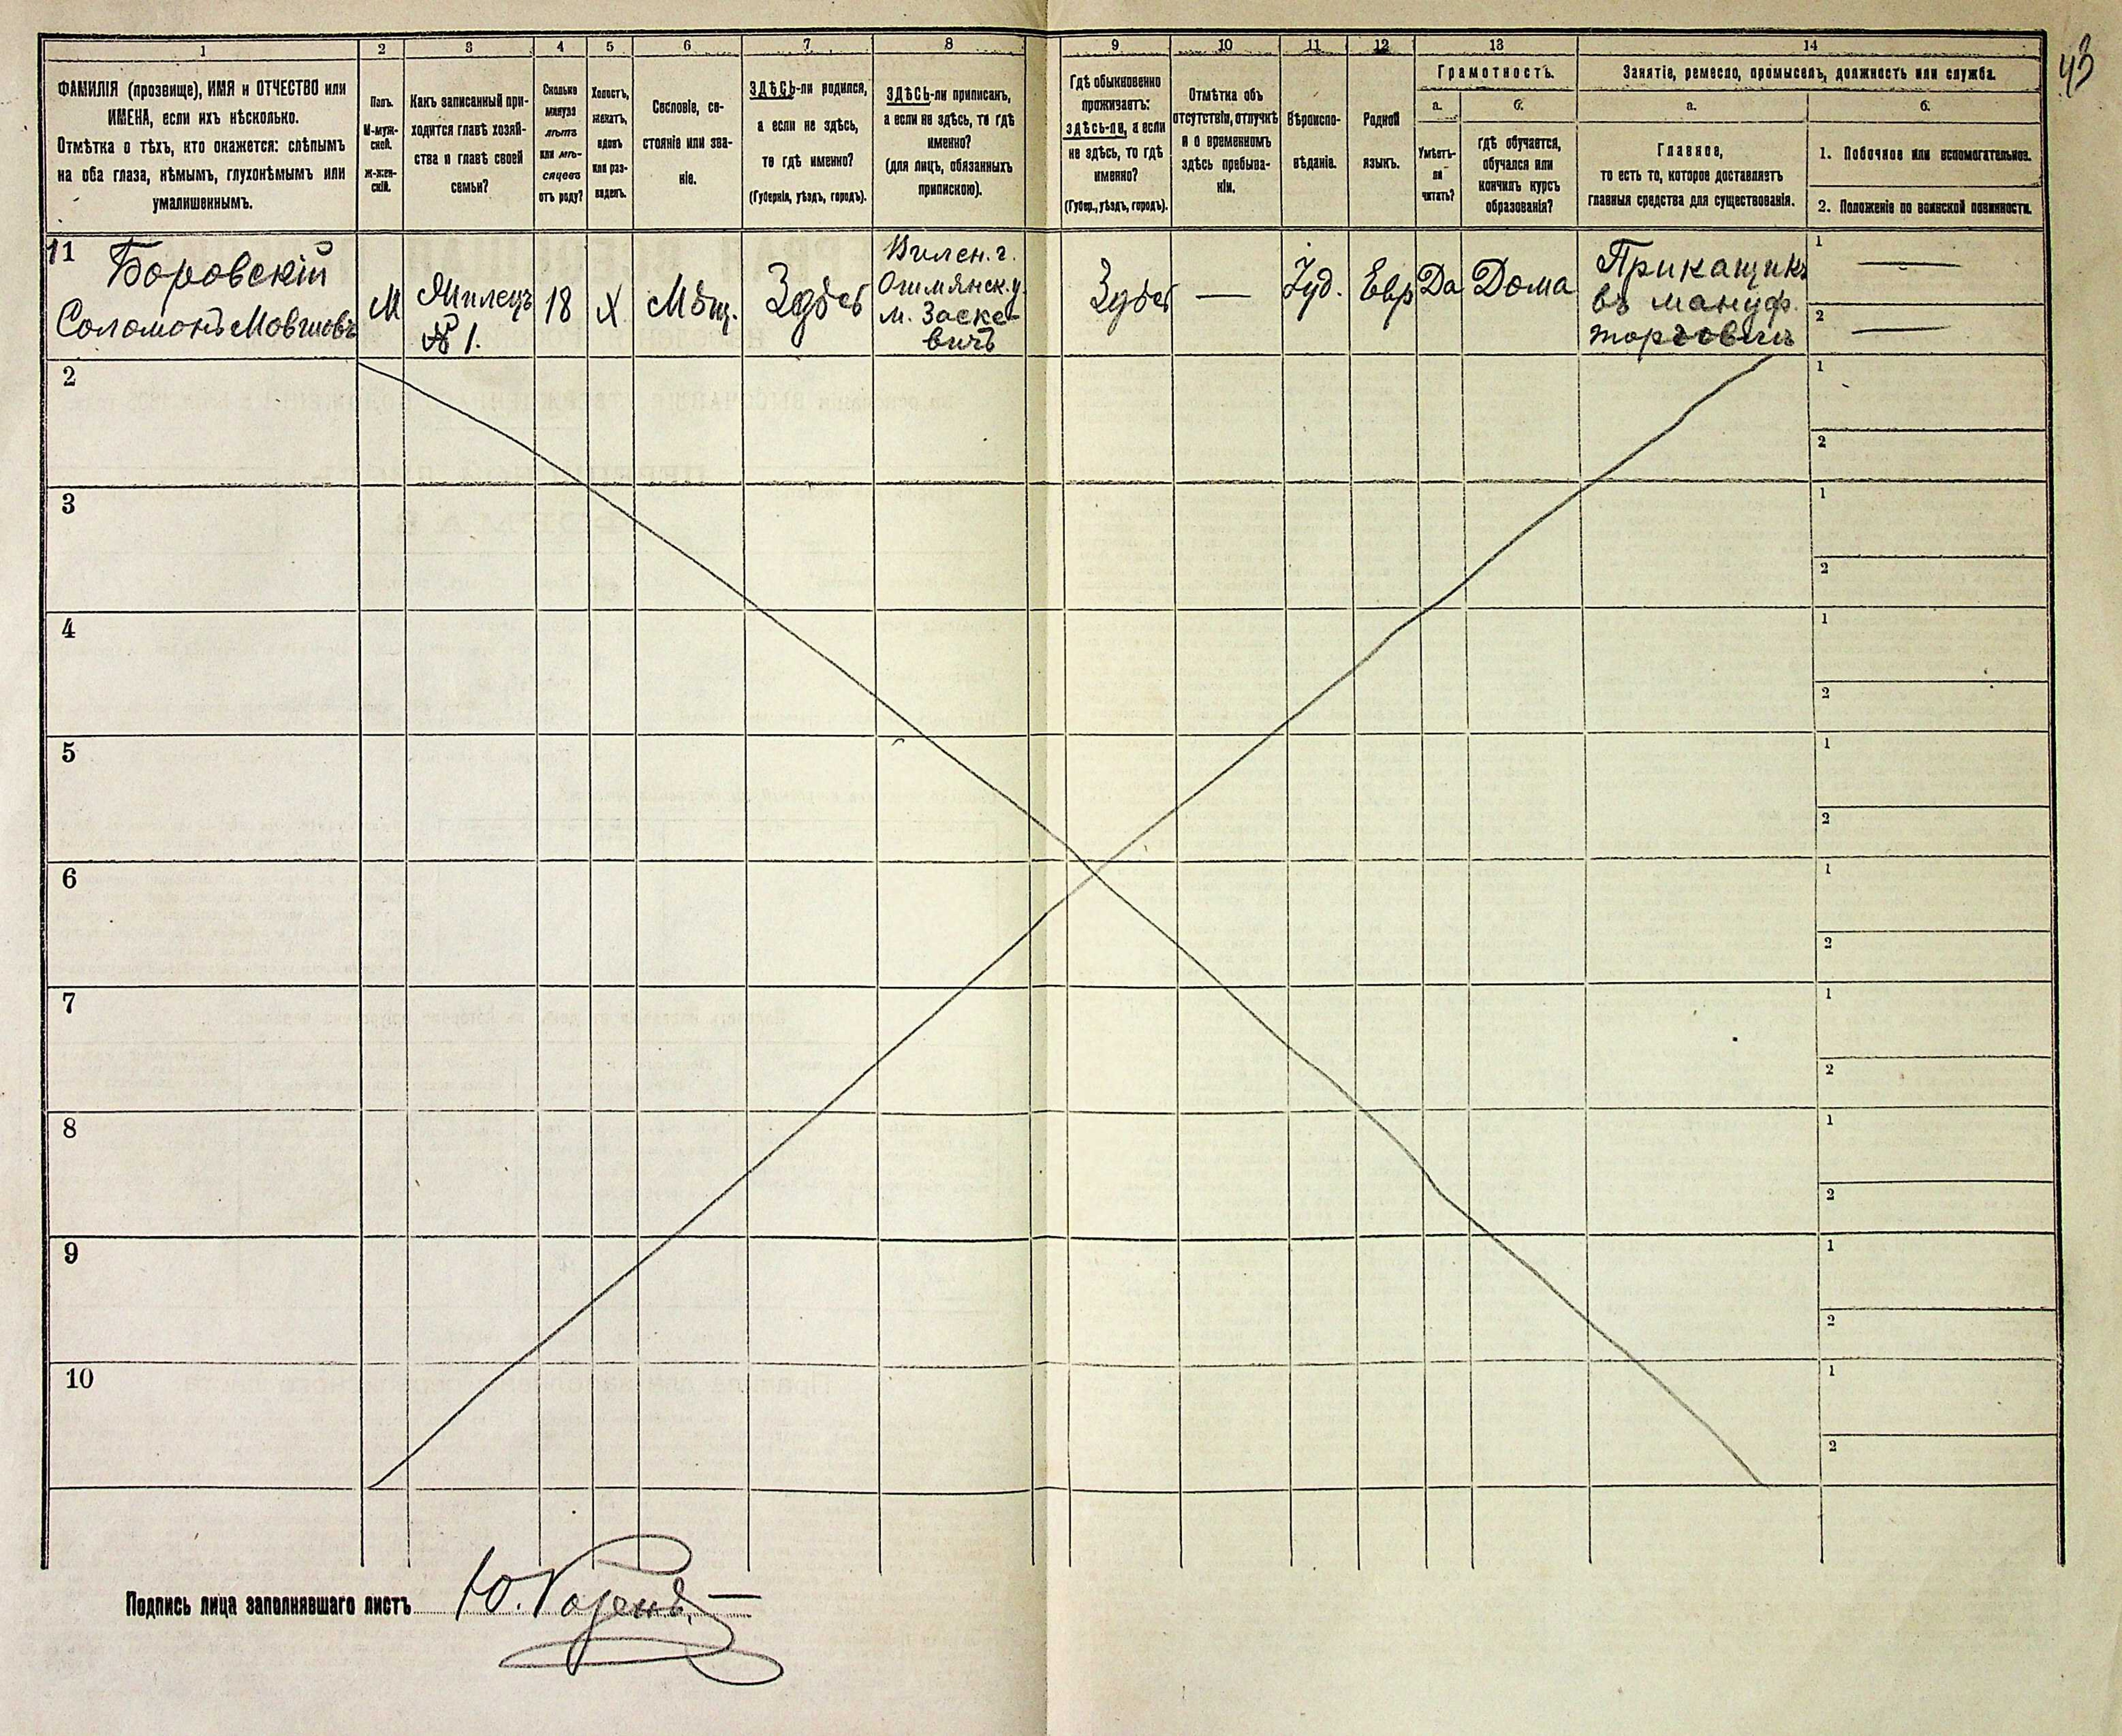 43
1 2 3 4 5 6 7 8 9 10 11 12 13 14
ФАМИЛІЯ (прозвище), ИМЯ и ОТЧЕСТВО или
ИМЕНА, если ихъ нѣсколько.
Отмѣтка о тѣхъ, кто окажется: слѣпымъ
на оба глаза, нѣмымъ, глухонѣмымъ или
умалишеннымъ.
Полъ.
М-муж-
ской.
ж-жен-
скій.
Какъ записанный при-
ходится главѣ хозяй-
ства и главѣ своей
семьи?
Сколько
минуло
лѣтъ
или мѣ-
сяцевъ
отъ роду?
Холостъ,
женатъ,
вдовъ
или раз-
веденъ.
Сословіе, со-
стояніе или зва-
ніе.
ЗДѢСЬ-ли родился,
а если не здѣсь,
то гдѣ именно?
(Губернія, уѣздъ, городъ).
ЗДѢСЬ-ли приписанъ,
а если не здѣсь, то гдѣ
именно?
(для лицъ, обязанныхъ
припискою).
Гдѣ обыкновенно
проживаетъ:
здѣсь-ли, а если
не здѣсь, то гдѣ
именно?
(Губер., уѣздъ, городъ).
Отмѣтка объ
отсутствіи, отлучкѣ
и о временномъ
здѣсь пребыва-
ніи.
Вѣроиспо-
вѣданіе.
Родной
языкъ.
Грамотность.
а.
б.
Умѣетъ-
ли
читать?
гдѣ обучается,
обучался или
кончилъ курсъ
образованія?
Занятіе, ремесло, промыселъ, должность или служба.
а.
б.
Главное,
то есть то, которое доставляетъ
главныя средства для существованія.
1. Побочное или вспомогательное.
2. Положеніе по воинской повинности.
11
Боровскій
Соломонъ Мовшовъ
М
Жилецъ
№ 1.
18
Х
Мѣщ.
Здѣсь
Вилен. г.
Ошмянск. у.
м. Заске-
вичъ
Здѣсь
—
Іуд.
Евр
Да
Дома
Прикащикъ
въ мануф.
торговли
1 —
2 —
2
1
2
3
1
2
4
1
2
5
1
2
6
1
2
7
1
2
8
1
2
9
1
2
10
1
2
Подпись лица заполнявшаго листъ Ю. Розенъ